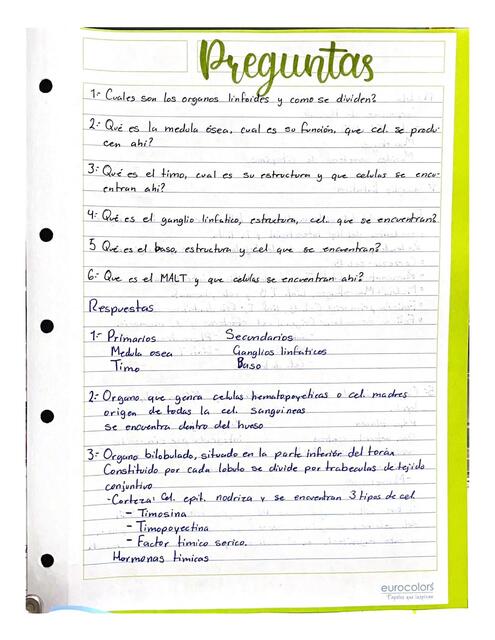 Preguntas
1:- Cuales son los organos linfoides y como se dividen?
2:- Qué es la medula ósea, cual es su función, que cel. se produ-
cen ahi?
3:- Qué es el timo, cual es su estructura y que celulas se encu-
entran ahi?
4:- Qué es el ganglio linfatico, estructura, cel. que se encuentran?
5 Qué es el baso, estructura y cel que se encuentran?
6:- Que es el MALT y que celulas se encuentran ahi?
Respuestas
1:- Primarios Secundarios
Medula osea Ganglios linfaticos
Timo Baso
2:- Organo que genra celulas hematopoyeticas o cel. madres
origen de todas la cel. sanguineas
se encuentra dentro del hueso
3:- Organo bilobulado, situado en la parte inferior del torax
Constituido por cada lobulo se divide por trabeculas de tejido
conjuntivo
- Corteza: Cel. epit. nodriza y se encuentran 3 tipos de cel
- Timosina
- Timopoyectina
- Factor timico serico.
Hormonas timicas
eurocolors